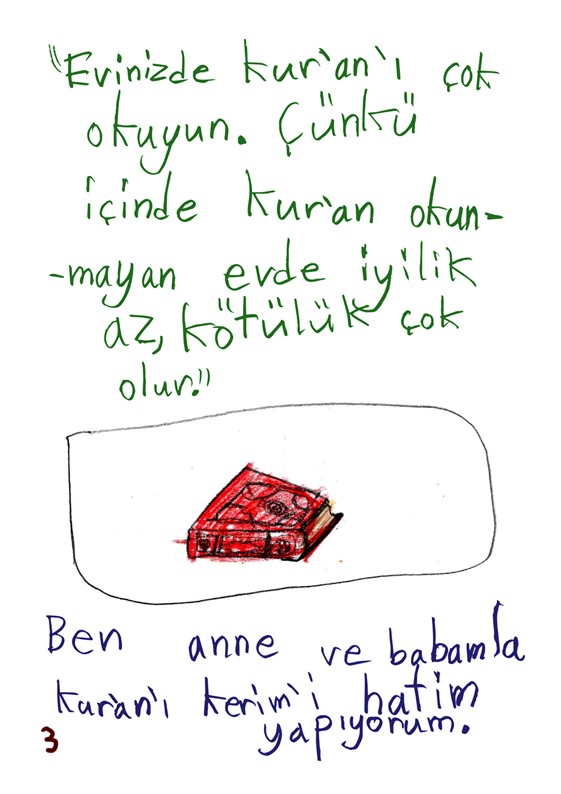 "Evinizde kur'an'ı çok
okuyun. Çünkü
içinde kur'an okun-
-mayan evde iyilik
az, kötülük çok
olur."
Ben anne ve babamla
kur'an'ı kerim'i hatim
yapıyorum.
3